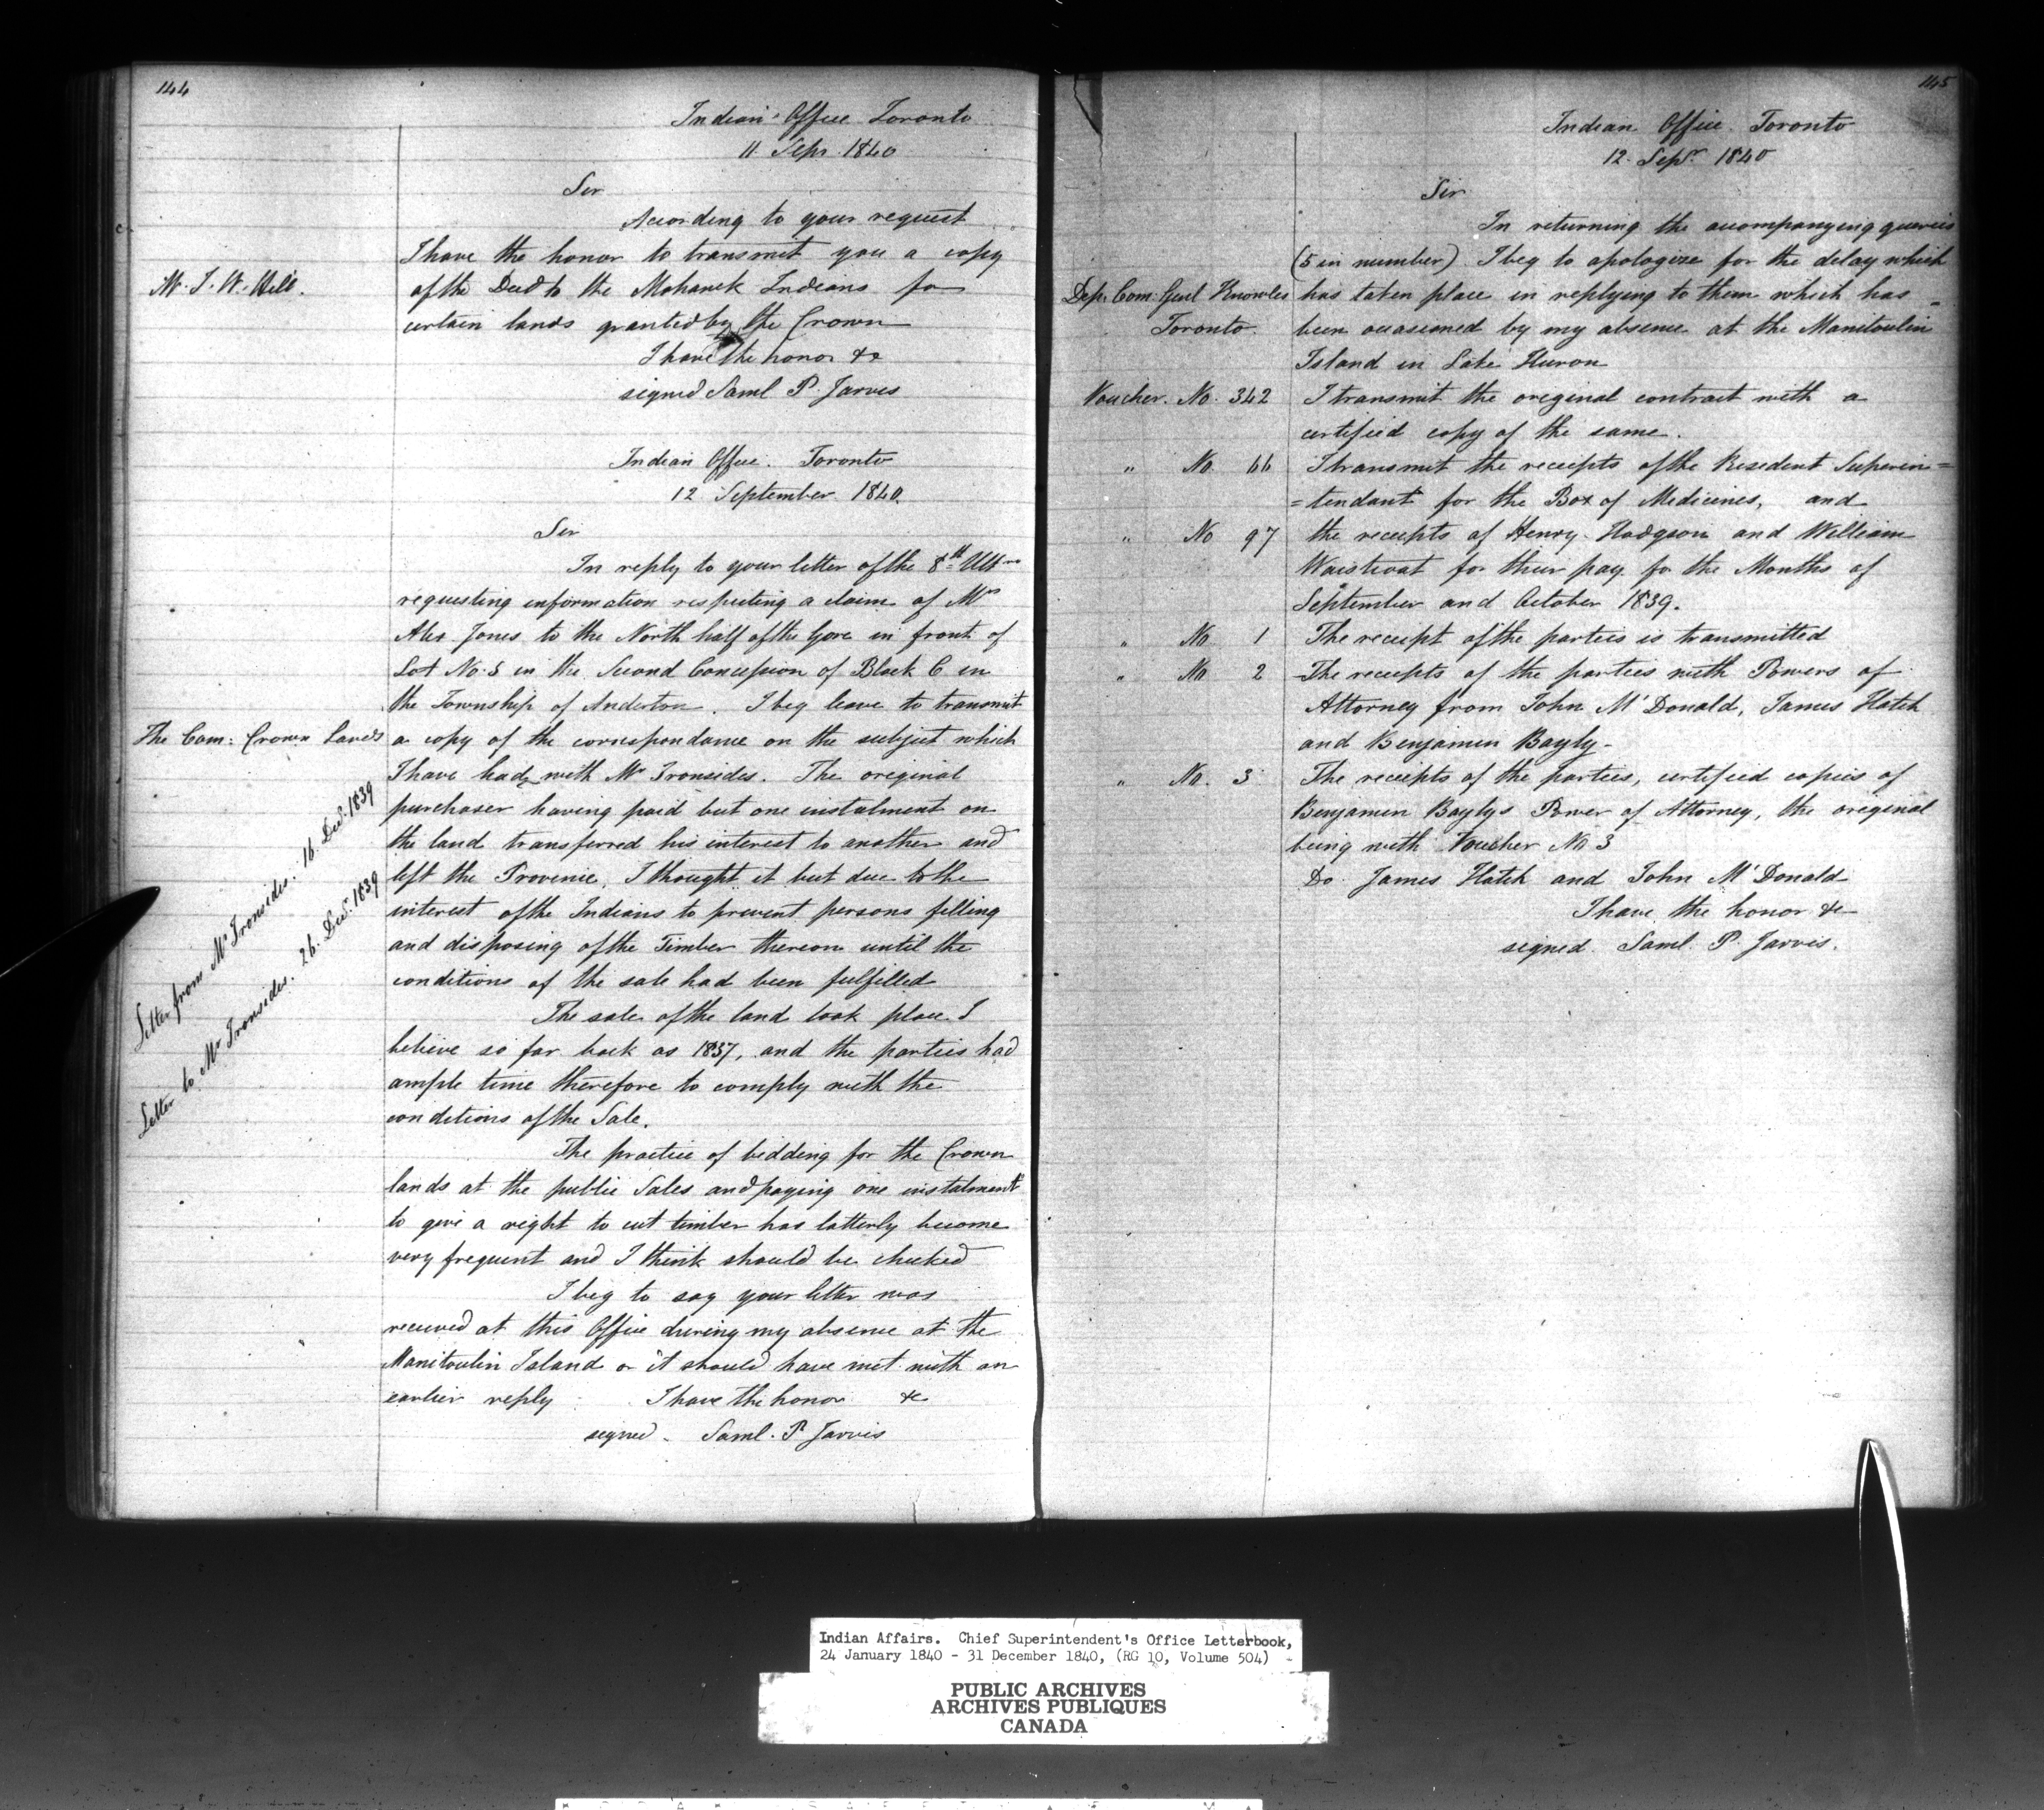 144
Indian Office Toronto
11 Sepr 1840
Sir
According to your request
I have the honor to transmit you a copy
Mr. J. W. Hill.
of the Deed to the Mohawk Indians for
certain lands granted by the Crown
I have the honor &c
signed Saml P. Jarvis
Indian Office. Toronto
12 September 1840.
Sir
In reply to your letter of the 8th Ulto
requesting information respecting a claim of Mr
Alex Jones to the North half of the Gore in front of
Lot No. 5 in the Second Concession of Block C in
the Township of Anderton. I beg leave to transmit
The Com: Crown Lands
a copy of the correspondance on the subject which
I have had with Mr Ironsides. The original
purchaser having paid but one instalment on
the land transferred his interest to another and
left the Province. I thought it but due to the
interest of the Indians to prevent persons felling
and disposing of the Timber thereon until the
conditions of the sale had been fulfilled
Letter from Mr Ironsides. 16. Decr. 1839
Letter to Mr Ironsides. 26. Decr. 1839
The sale of the land took place I
believe so far back as 1837, and the parties had
ample time therefore to comply with the
conditions of the Sale.
The practice of bidding for the Crown
lands at the public Sales and paying one instalment
to give a right to cut timber has latterly become
very frequent and I think should be checked
I beg to say your letter was
received at this Office during my absence at the
Manitoulin Island or it should have met with an
earlier reply I have the honor &c
signed. Saml. P Jarvis
145
Indian Office Toronto
12. Sepr 1840
Sir
In returning the accompanying queries
(5 in number) I beg to apologize for the delay which
Dep. Com. Genl Knowles
Toronto.
has taken place in replying to them which has
been occasioned by my absence at the Manitoulin
Island in Lake Huron
Voucher. No. 342 I transmit the original contract with a
certified copy of the same.
" No. 66 I transmit the receipts of the Resident Superin=
=tendant for the Box of Medicines, and
" No 97 the receipts of Henry Hodgson and William
Waistcoat for their pay for the Months of
September and October 1839.
" No 1 The receipt of the parties is transmitted
" No 2 The receipts of the parties with Powers of
Attorney from John McDonald, James Hatch
and Benjamin Bayly-
" No. 3 The receipts of the parties, certified copies of
Benjamin Baylys Power of Attorney, the original
being with Voucher No 3
Do James Hatch and John McDonald
I have the honor &c
signed. Saml. P. Jarvis.
Indian Affairs. Chief Superintendent's Office Letterbook,
24 January 1840 - 31 December 1840, (RG 10, Volume 504)
PUBLIC ARCHIVES
ARCHIVES PUBLIQUES
CANADA